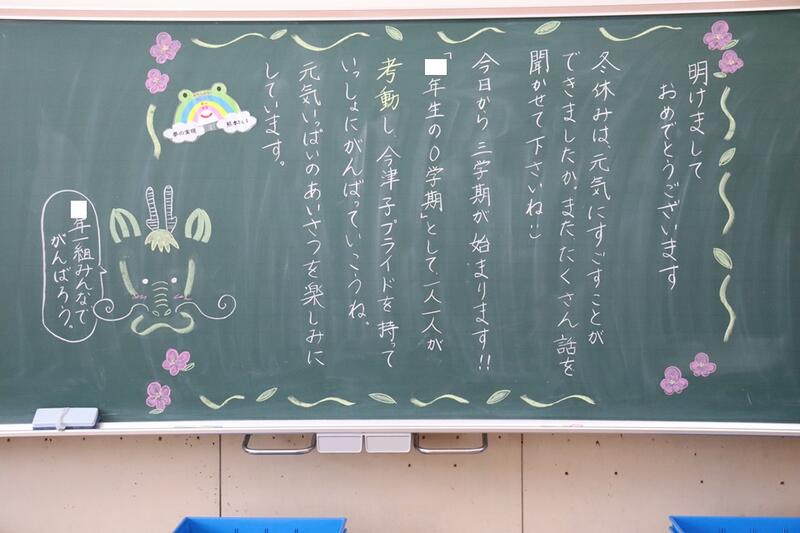 明けまして
おめでとうございます
冬休みは、元気にすごすことが
できましたか。また、たくさん話を
聞かせて下さいね。
今日から 三学期が 始まります!!
「年生の0学期」として、一人一人が、
考動し、今津子プライドを持って
いっしょにがんばっていこうね。
元気いっぱいのあいさつを楽しみに
しています。
夢の実現
年一組みんなで
がんばろう。